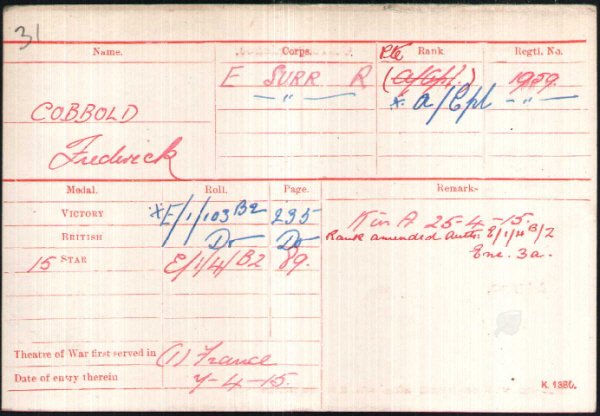 31
Name. Corps. Rank. Regtl. No.
E SURR R Pte (A/Cpl.) 1959.
—"— * A/Cpl —"—
COBBOLD
Frederick
Medal. Roll. Page. Remarks.
VICTORY *E/1/103B2 235
BRITISH Do Do
15 STAR E/1/4/B2 89.
K in A 25-4-15.
Rank amended Auth: E/1/4B/2
Enc. 3a.
Theatre of War first served in (1) France
Date of entry therein 7-4-15.
K. 1380.